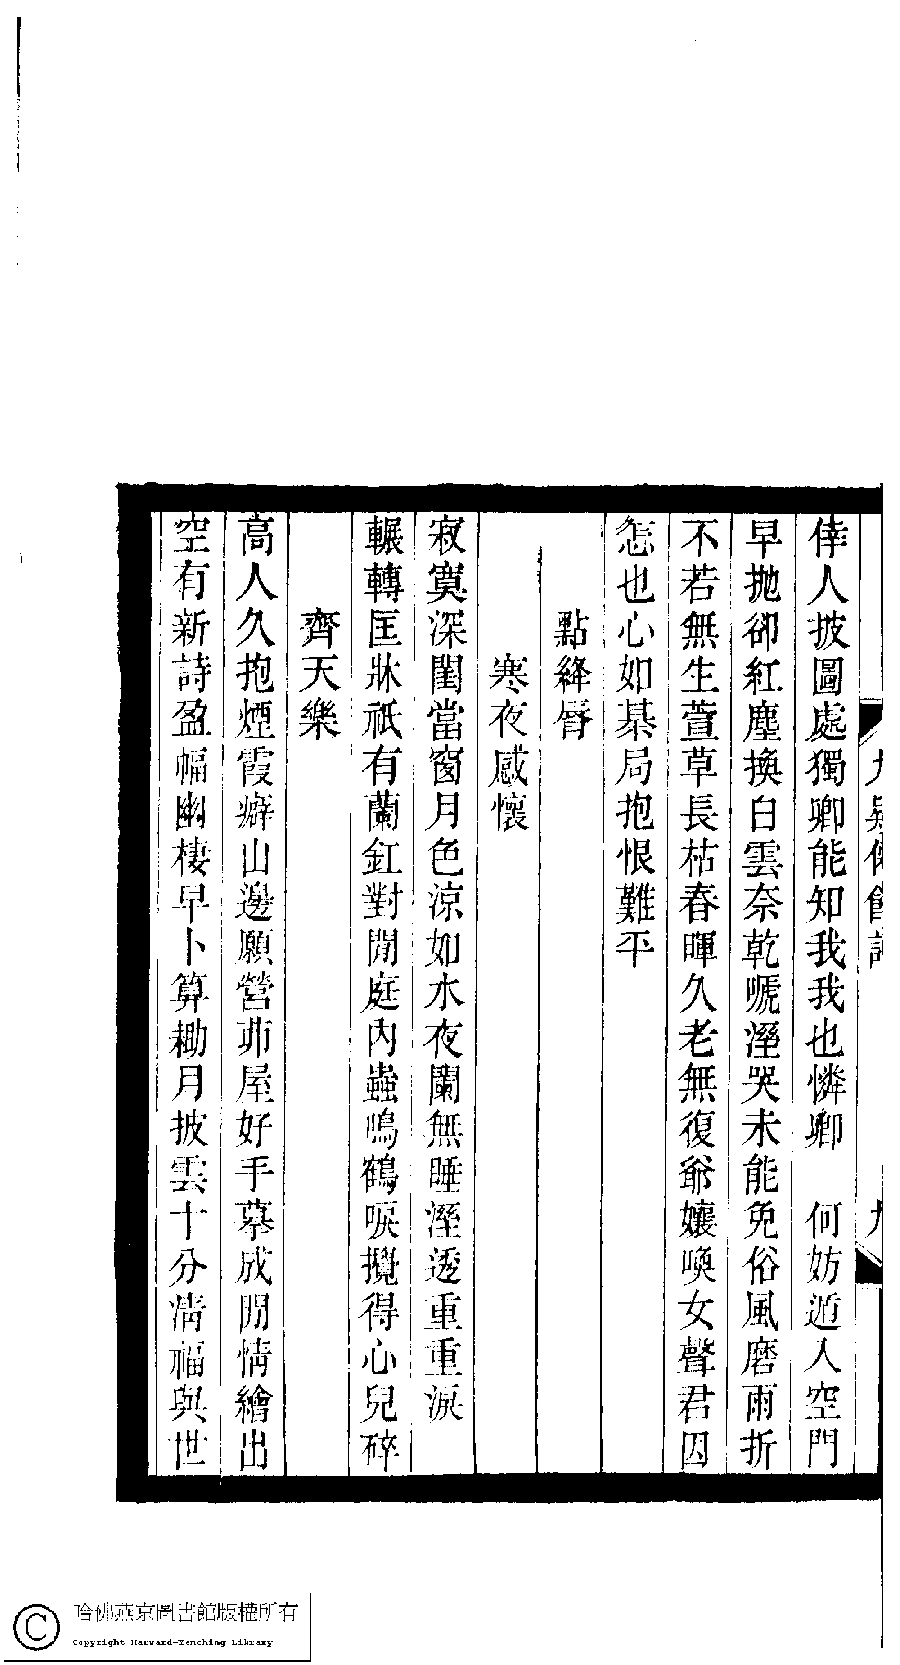 倖人披圖處獨卿能知我我也憐卿　何妨遁入空門
早拋卻紅塵換白雲奈乾嗁溼哭未能免俗風磨雨折
不若無生萱草長枯春暉久老無復爺孃喚女聲君因
怎也心如棊局抱恨難平
點絳脣
寒夜感懷
寂寞深閨當窗月色涼如水夜闌無睡溼透重重淚
輾轉匡牀祇有蘭釭對閒庭內蟲鳴鶴唳攪得心兒碎
齊天樂
高人久抱煙霞癖山邊願營茆屋好手摹成閒情繪出
空有新詩盈幅幽棲早卜算鋤月披雲十分清福與世
哈佛燕京圖書館版權所有
Copyright Harvard-Yenching Library